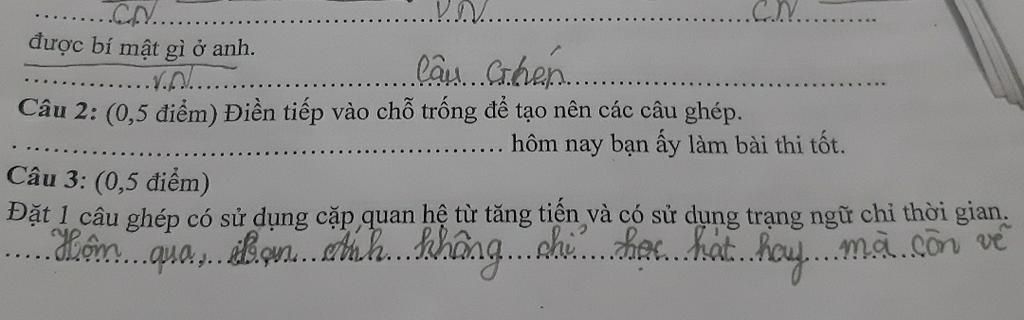 CN VN CN
được bí mật gì ở anh.
VN Câu Ghép
Câu 2: (0,5 điểm) Điền tiếp vào chỗ trống để tạo nên các câu ghép.
hôm nay bạn ấy làm bài thi tốt.
Câu 3: (0,5 điểm)
Đặt 1 câu ghép có sử dụng cặp quan hệ từ tăng tiến và có sử dụng trạng ngữ chỉ thời gian.
Hôm qua, bạn không chỉ học hát hay mà còn vẽ